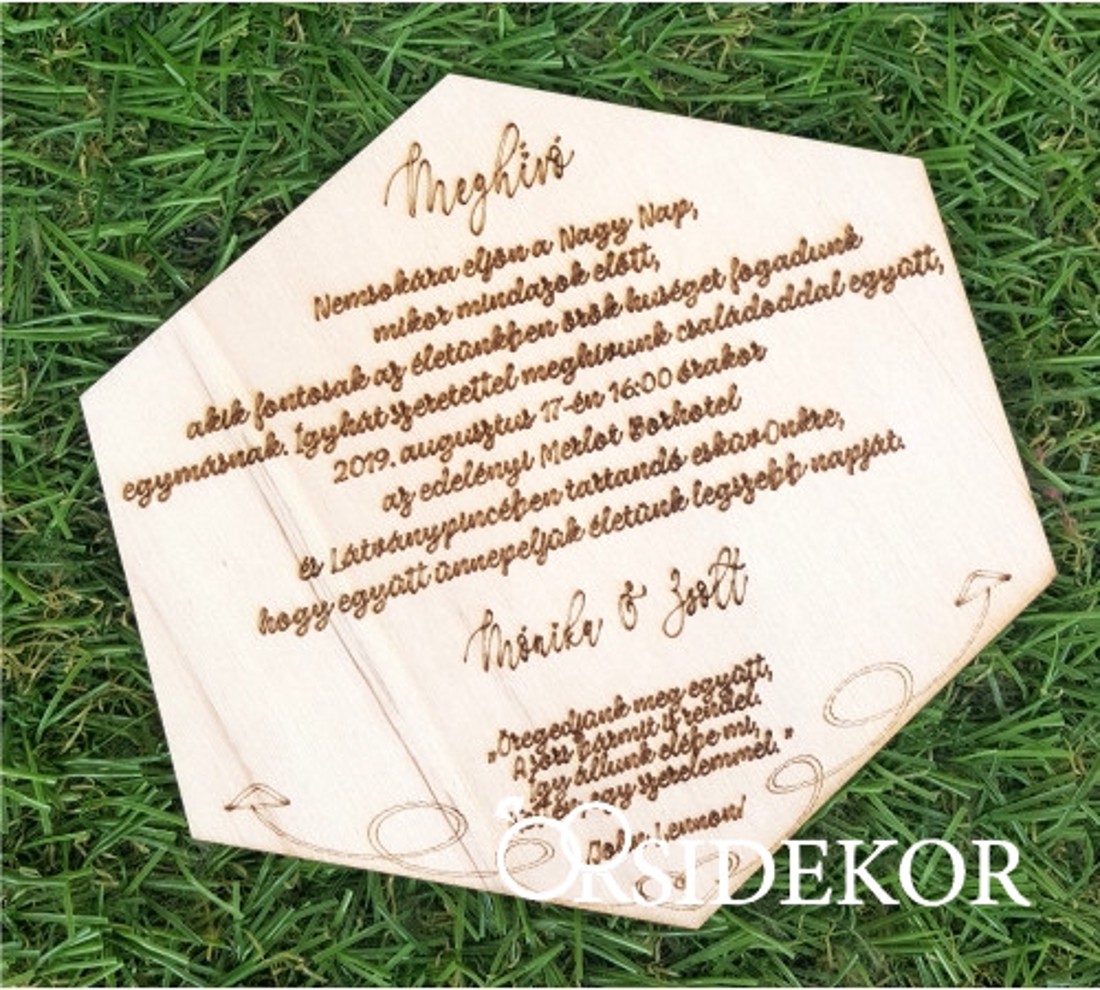 Meghívó
Nemsokára eljön a Nagy Nap,
mikor mindazok előtt,
akik fontosak az életünkben örök huséget fogadunk
egymásnak. Igyhát szeretettel meghívunk családoddal együtt,
2019. augusztus 17-én 16:00 órakor
az edelényi Merlot Borhotel
és Látványpincében tartandó esküvőnkre,
hogy együtt ünnepeljük életünk legszebb napját.
Mónika & Zsolt
„Öregedjünk meg együtt,
A sors bármit is rendel.
Így állunk elébe mi,
egy szerelemmel.”
John Lennon/
ORSIDEKOR